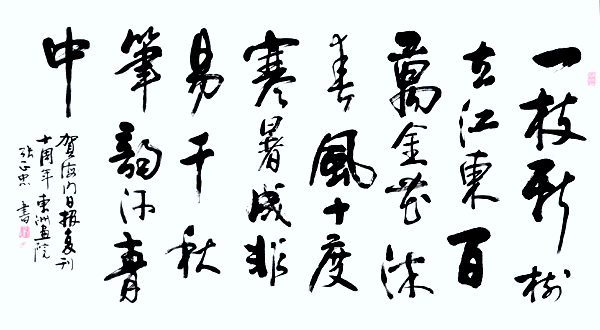 一枝新樹
立江東百
萬金花沐
春風十度
寒暑成非
易千秋
筆韵汗青
中
賀海门日报复刊
十周年東洲画院
张正忠書